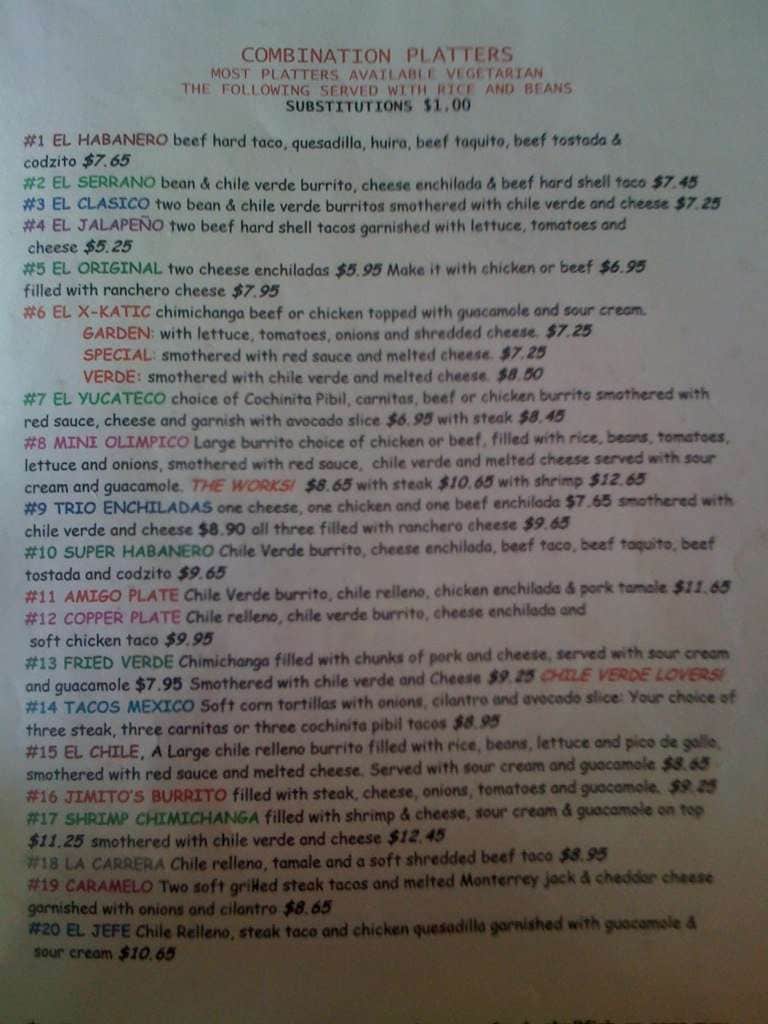 COMBINATION PLATTERS
MOST PLATTERS AVAILABLE VEGETARIAN
THE FOLLOWING SERVED WITH RICE AND BEANS
SUBSTITUTIONS $1.00
#1 EL HABANERO beef hard taco, quesadilla, huira, beef taquito, beef tostada &
codzito $7.65
#2 EL SERRANO bean & chile verde burrito, cheese enchilada & beef hard shell taco $7.45
#3 EL CLASICO two bean & chile verde burritos smothered with chile verde and cheese $7.25
#4 EL JALAPEÑO two beef hard shell tacos garnished with lettuce, tomatoes and
cheese $5.25
#5 EL ORIGINAL two cheese enchiladas $5.95 Make it with chicken or beef $6.95
filled with ranchero cheese $7.95
#6 EL X-KATIC chimichanga beef or chicken topped with guacamole and sour cream.
GARDEN: with lettuce, tomatoes, onions and shredded cheese. $7.25
SPECIAL: smothered with red sauce and melted cheese. $7.25
VERDE: smothered with chile verde and melted cheese. $8.50
#7 EL YUCATECO choice of Cochinita Pibil, carnitas, beef or chicken burrito smothered with
red sauce, cheese and garnish with avocado slice $6.95 with steak $8.45
#8 MINI OLIMPICO Large burrito choice of chicken or beef, filled with rice, beans, tomatoes,
lettuce and onions, smothered with red sauce, chile verde and melted cheese served with sour
cream and guacamole. THE WORKS! $8.65 with steak $10.65 with shrimp $12.65
#9 TRIO ENCHILADAS one cheese, one chicken and one beef enchilada $7.65 smothered with
chile verde and cheese $8.90 all three filled with ranchero cheese $9.65
#10 SUPER HABANERO Chile Verde burrito, cheese enchilada, beef taco, beef taquito, beef
tostada and codzito $9.65
#11 AMIGO PLATE Chile Verde burrito, chile relleno, chicken enchilada & pork tamale $11.65
#12 COPPER PLATE Chile relleno, chile verde burrito, cheese enchilada and
soft chicken taco $9.95
#13 FRIED VERDE Chimichanga filled with chunks of pork and cheese, served with sour cream
and guacamole $7.95 Smothered with chile verde and Cheese $9.25 CHILE VERDE LOVERS!
#14 TACOS MEXICO Soft corn tortillas with onions, cilantro and avocado slice: Your choice of
three steak, three carnitas or three cochinita pibil tacos $8.95
#15 EL CHILE, A Large chile relleno burrito filled with rice, beans, lettuce and pico de gallo,
smothered with red sauce and melted cheese. Served with sour cream and guacamole $8.65
#16 JIMITO'S BURRITO filled with steak, cheese, onions, tomatoes and guacamole. $9.25
#17 SHRIMP CHIMICHANGA filled with shrimp & cheese, sour cream & guacamole on top
$11.25 smothered with chile verde and cheese $12.45
#18 LA CARRERA Chile relleno, tamale and a soft shredded beef taco $8.95
#19 CARAMELO Two soft grilled steak tacos and melted Monterrey jack & cheddar cheese
garnished with onions and cilantro $8.65
#20 EL JEFE Chile Relleno, steak taco and chicken quesadilla garnished with guacamole &
sour cream $10.65